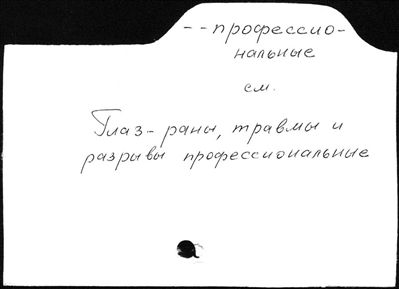 --профессио-
нальные
см.
Глаз-раны, травмы и
разрывы профессиональные